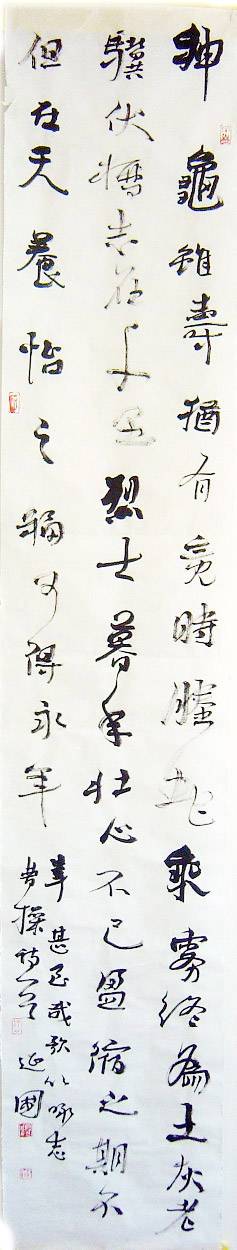 神龜雖壽猶有竟時騰蛇乘霧終為土灰老
驥伏櫪志在千里烈士暮年壯心不已盈縮之期不
但在天養怡之福可得永年
幸甚至哉歌以咏志
曹操詩一首 延國